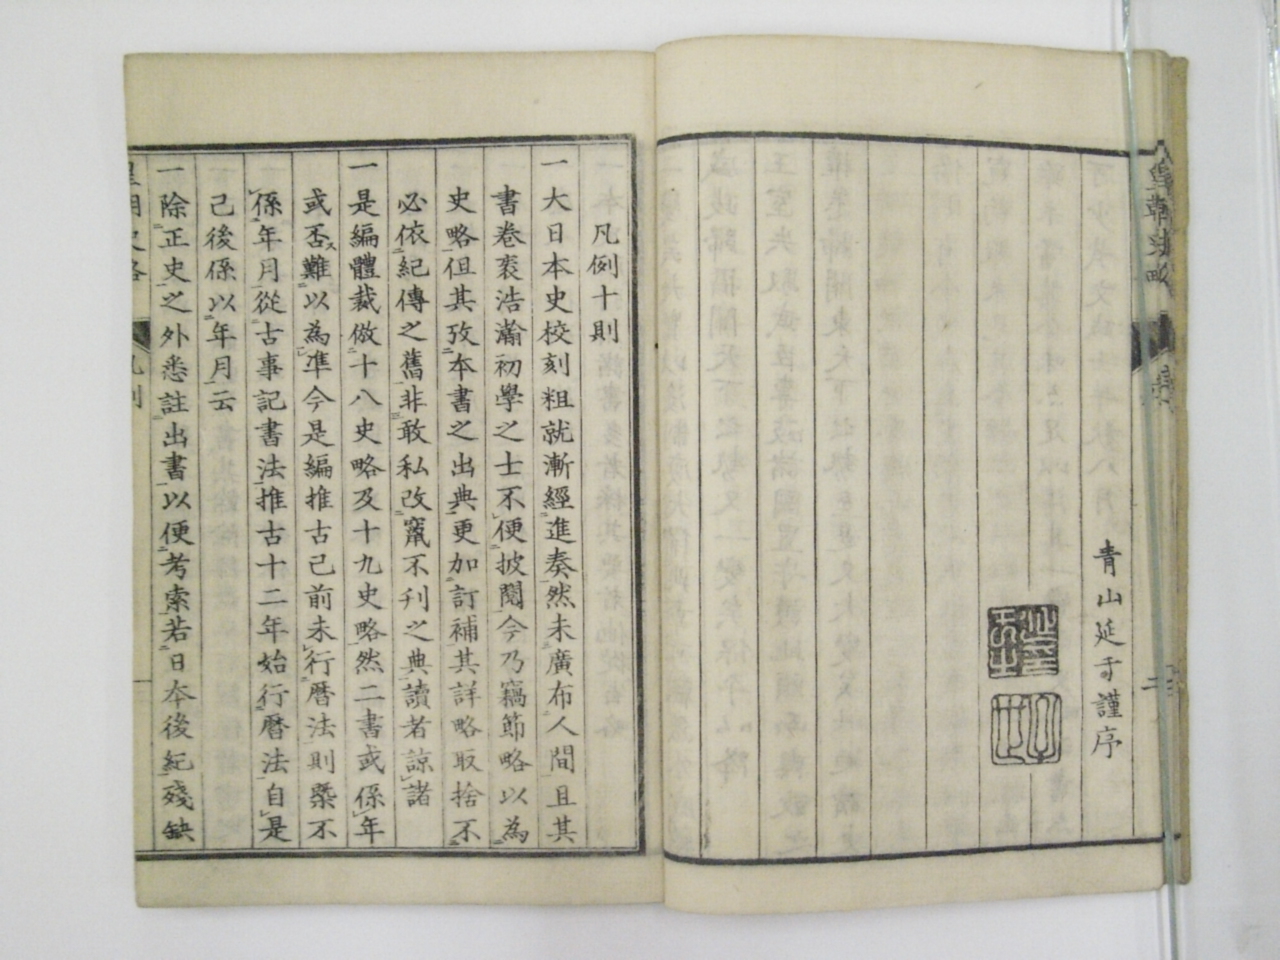 皇朝史略
序
二
青山延于謹序
凡例十則
一大日本史校刻粗就漸經進奏然未廣布人間且其
書卷袠浩瀚初學之士不便披閲今乃竊節略以為
史略但其攷本書之出典更加訂補其詳略取捨不
必依紀傳之舊非敢私改竄不刋之典讀者諒諸
一是編體裁倣十八史略及十九史略然二書或係年
或否難以為準今是編推古己前未行暦法則槩不
係年月從古事記書法推古十二年始行暦法自是
己後係以年月云
一除正史之外悉註出書以便考索若日本後紀殘缺
皇朝史略
凡例